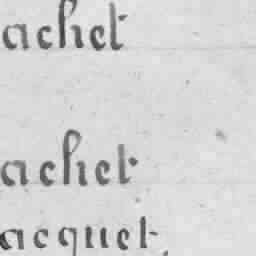 achet
achet
acquet